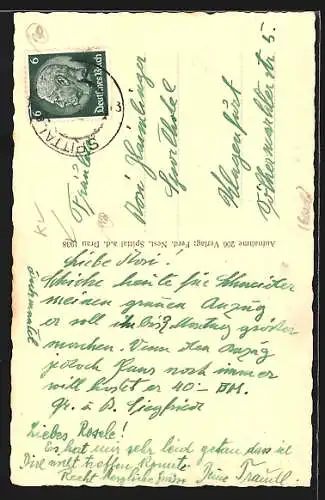 6
Deutsches Reich
6
SPITTAL
Fräulein
Rosi
Sporthotel
Klagenfurt
Völkermarkter str 5.
Aufnahme 206 Verlag: Ferd. Nest, Spittal a.d. Drau 1938
Liebe Rosi!
Schicke heute für Schneider
meinen grauen Anzug
er soll ihn bis Montag größer
machen. Wenn den Anzug
jedoch Hans noch immer
will kostet er 40.- RM.
Gr. u. B. Siegfried
Liebes Roserl!
Es hat mir sehr leid getan das ich
Dich nicht treffen konnte.
Recht herzliche Grüße Deine Traudl.